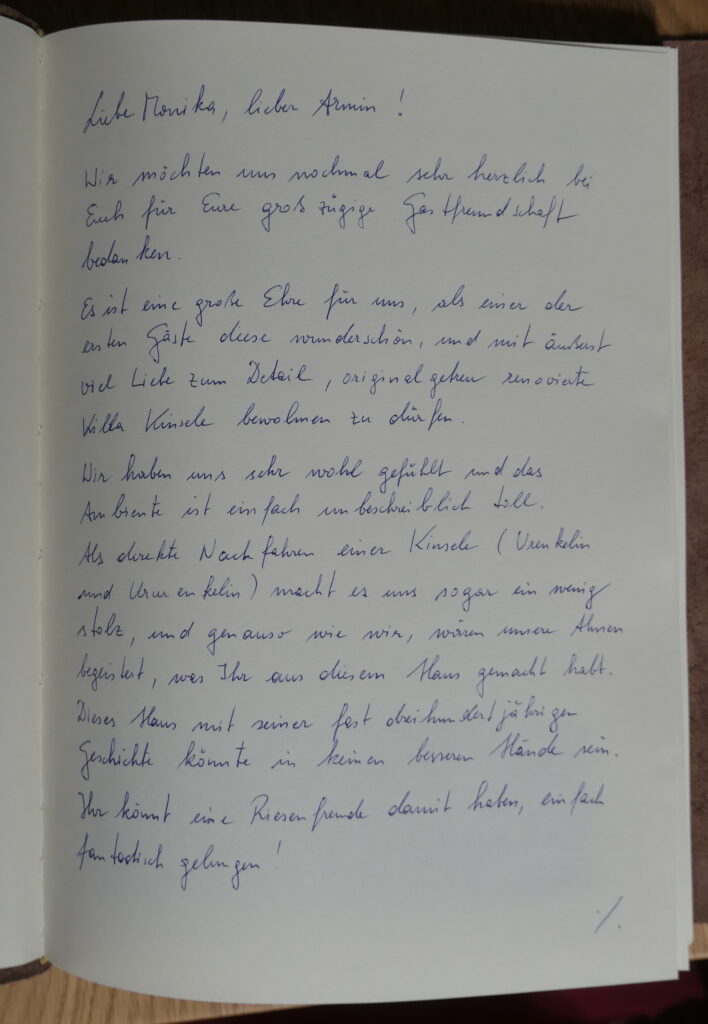 Liebe Monika, lieber Armin !
Wir möchten uns nochmal sehr herzlich bei
Euch für Eure großzügige Gastfreundschaft
bedanken.
Es ist eine große Ehre für uns, als einer der
ersten Gäste diese wunderschön, und mit äußerst
viel Liebe zum Detail, originalgetreu renovierte
Villa Kinsele bewohnen zu dürfen.
Wir haben uns sehr wohl gefühlt und das
Ambiente ist einfach unbeschreiblich toll.
Als direkte Nachfahren einer Kinsele (Urenkelin
und Ururenkelin) macht es uns sogar ein wenig
stolz, und genauso wie wir, wären unsere Ahnen
begeistert, was Ihr aus diesem Haus gemacht habt.
Dieses Haus mit seiner fast dreihundertjährigen
Geschichte könnte in keinen besseren Hände sein.
Ihr könnt eine Riesenfreude damit haben, einfach
fantastisch gelungen !
./.